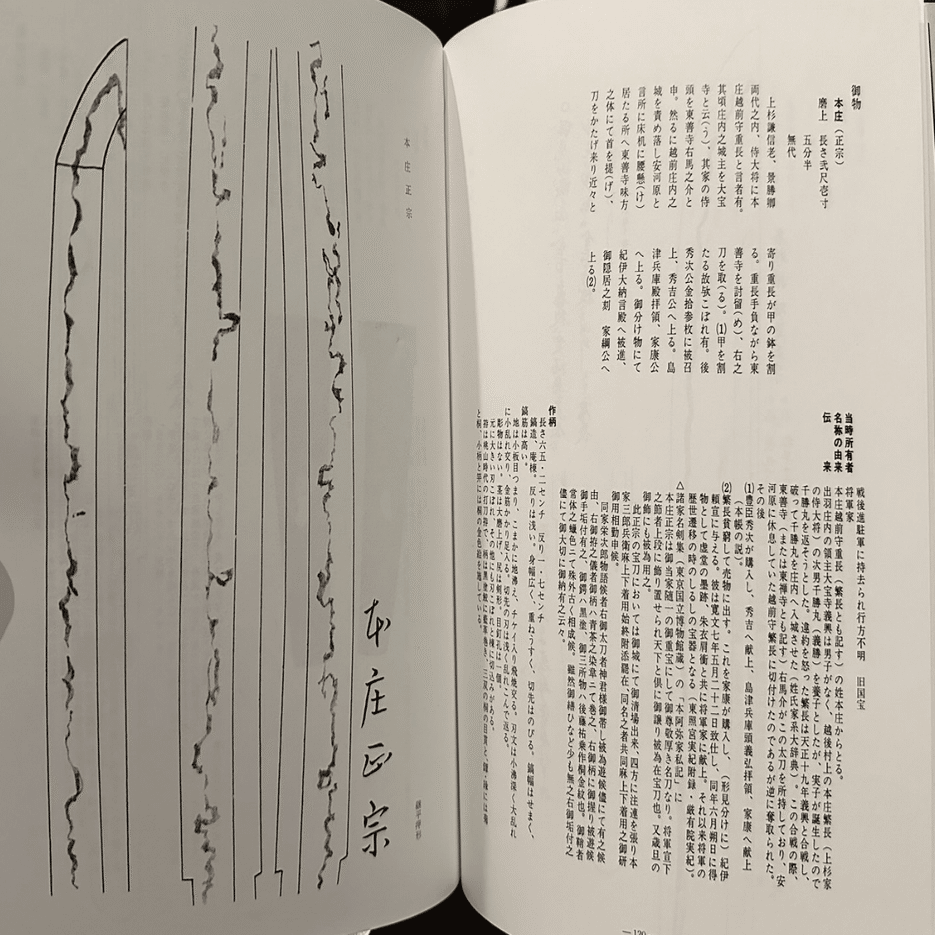 御物
本庄（正宗）
磨上　長さ弐尺壱寸
五分半
無代
上杉謙信老、景勝卿
両代之内、侍大将に本
庄越前守重長と言者有。
其頃庄内之城主を大宝
寺と云(う)、其家の侍
頭を東善寺右馬之介と
申。然るに越前庄内之
城を責め落し安河原と
言所に床机に腰懸(け)
居たる所へ東善寺味方
之体にて首を提(げ)、
刀をかたげ来り近々と
寄り重長が甲の鉢を割
る。重長手負ながら東
善寺を討留(め)、右之
刀を取(る)。(1)甲を割
たる故歟こぼれ有。後
秀次公金拾参枚に被召
上、秀吉公へ上る。島
津兵庫殿拝領、家康公
へ上る。御分け物にて
紀伊大納言殿へ被進、
御隠居之刻　家綱公へ
上る(2)。
当時所有者
名称の由来
伝　来
戦後進駐軍に持去られ行方不明　旧国宝
将軍家
本庄越前守重長（繁長とも記す）の姓本庄からとる。
出羽庄内の領主大宝寺義興は男子がなく、越後村上の本庄繁長（上杉家
の侍大将）の次男千勝丸（義勝）を養子としたが、実子が誕生したので
千勝丸を返そうとした。違約を怒った繁長は天正十九年義興と合戦し、
破って千勝丸を庄内へ入城させた（姓氏家系大辞典）。この合戦の際、
東善寺（または東禅寺とも記す）右馬介がこの太刀を所持しており、安
河原に休息していた越前守繁長に切付けたのであるが逆に奪取られた。
その後
(1)豊臣秀次が購入し、秀吉へ献上、島津兵庫頭義弘拝領、家康へ献上
（本帳の説）。
(2)繁長貧窮して売物に出す。これを家康が購入し、（形見分けに）紀伊
頼宣に与える。彼は寛文七年五月二十二日致仕し、同年六月朔日に得
物として虚堂の墨跡、朱衣肩衝と共に将軍家に献上。それ以来将軍の
歴世遷移の時のしるしの宝器となる（東照宮実紀附録・厳有院実紀）。
△諸家名剣集（東京国立博物館蔵）の「本阿弥家私記」に
本庄正宗は御当家随一の御重宝にして御尊敬厚き名刀なり。将軍宣下
之節者上段に飾り置せられ天下と倶に御譲り被為在宝刀也。又歳旦の
御飾にも被為用之。
此正宗の宝刀においては御城にて御清場出来、四方に注連を張り本
家三郎兵衛麻上下着用始終附添罷在、同名之者共同麻上下着用之御研
御用相勤申候。
同家栄次郎物語候者右御太刀者神君様御帯し被為遊候儘にて有之候
由、右御拵之儀者御柄ハ青茶之染韋ニて巻之、右御柄に御握り被遊候
御手垢付有之、御鍔ハ黒塗、御三所物ハ後藤祐乗作桐金紋也。御鞘者
常体之蠟色ニて殊外古く相成候。雖然御繕ひなど少も無之右御垢付之
儘にて御大切に御納有之云々。
作柄
長さ六五・二センチ　反り一・七センチ
鎬造、庵棟。反りは浅い。身幅広く、重ねうすく、切先はのびる。鎬幅はせまく、
鎬筋は高い。
地は小板目つまり、こまかに地沸え、チケイ入り飛焼交る。刃文は小沸深く大乱れ
に小乱れ交り、金筋かかり足入る。切先の刃は浅く乱れこんで返る。
彫物はない。茎は大磨上げ、尻は剣形。目釘孔は一個。
元に大きい刃こぼれ、その他にも刃こぼれと棟に切込みがある。
―120
本庄正宗
本庄正宗